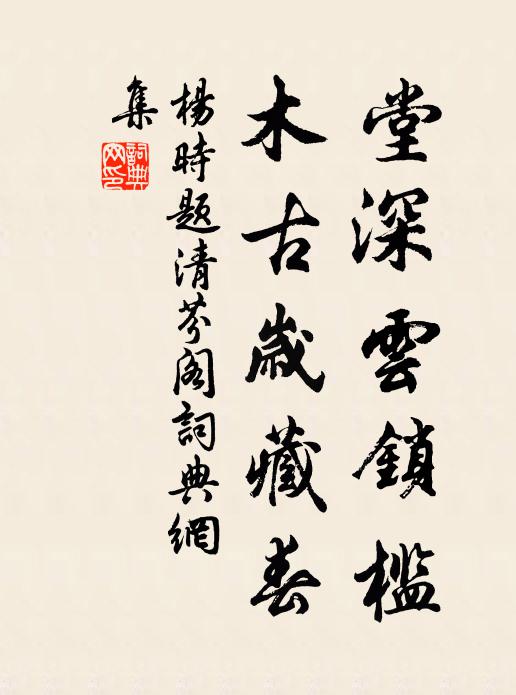 堂深雲鎖檻
木古歲藏春
楊時題清芬阁詞典網
集
詞典
網印